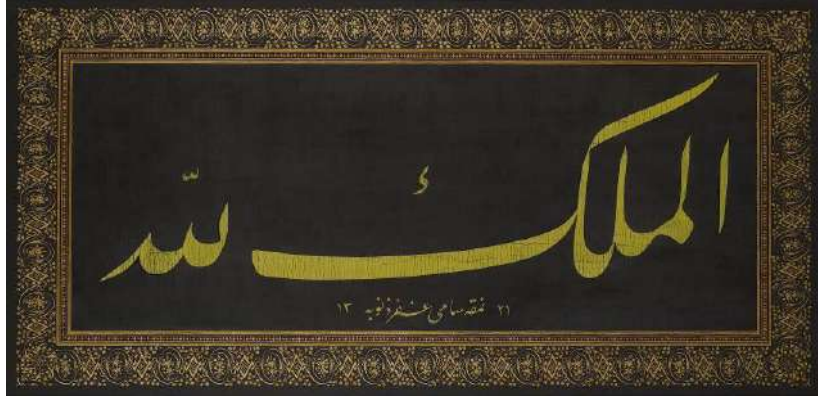 الملك لله
٢١ نمقه سامى غفر ذنوبه ١٣